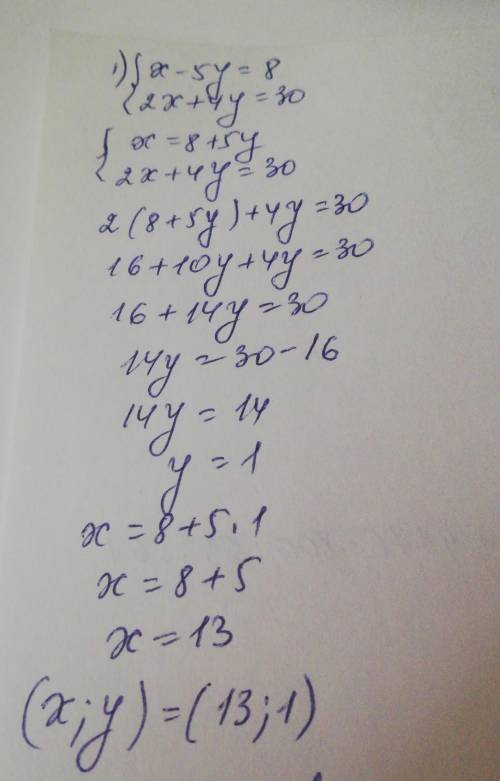 1) { x - 5y = 8
{ 2x + 4y = 30
{ x = 8 + 5y
{ 2x + 4y = 30
2(8 + 5y) + 4y = 30
16 + 10y + 4y = 30
16 + 14y = 30
14y = 30 - 16
14y = 14
y = 1
x = 8 + 5 · 1
x = 8 + 5
x = 13
(x; y) = (13; 1)